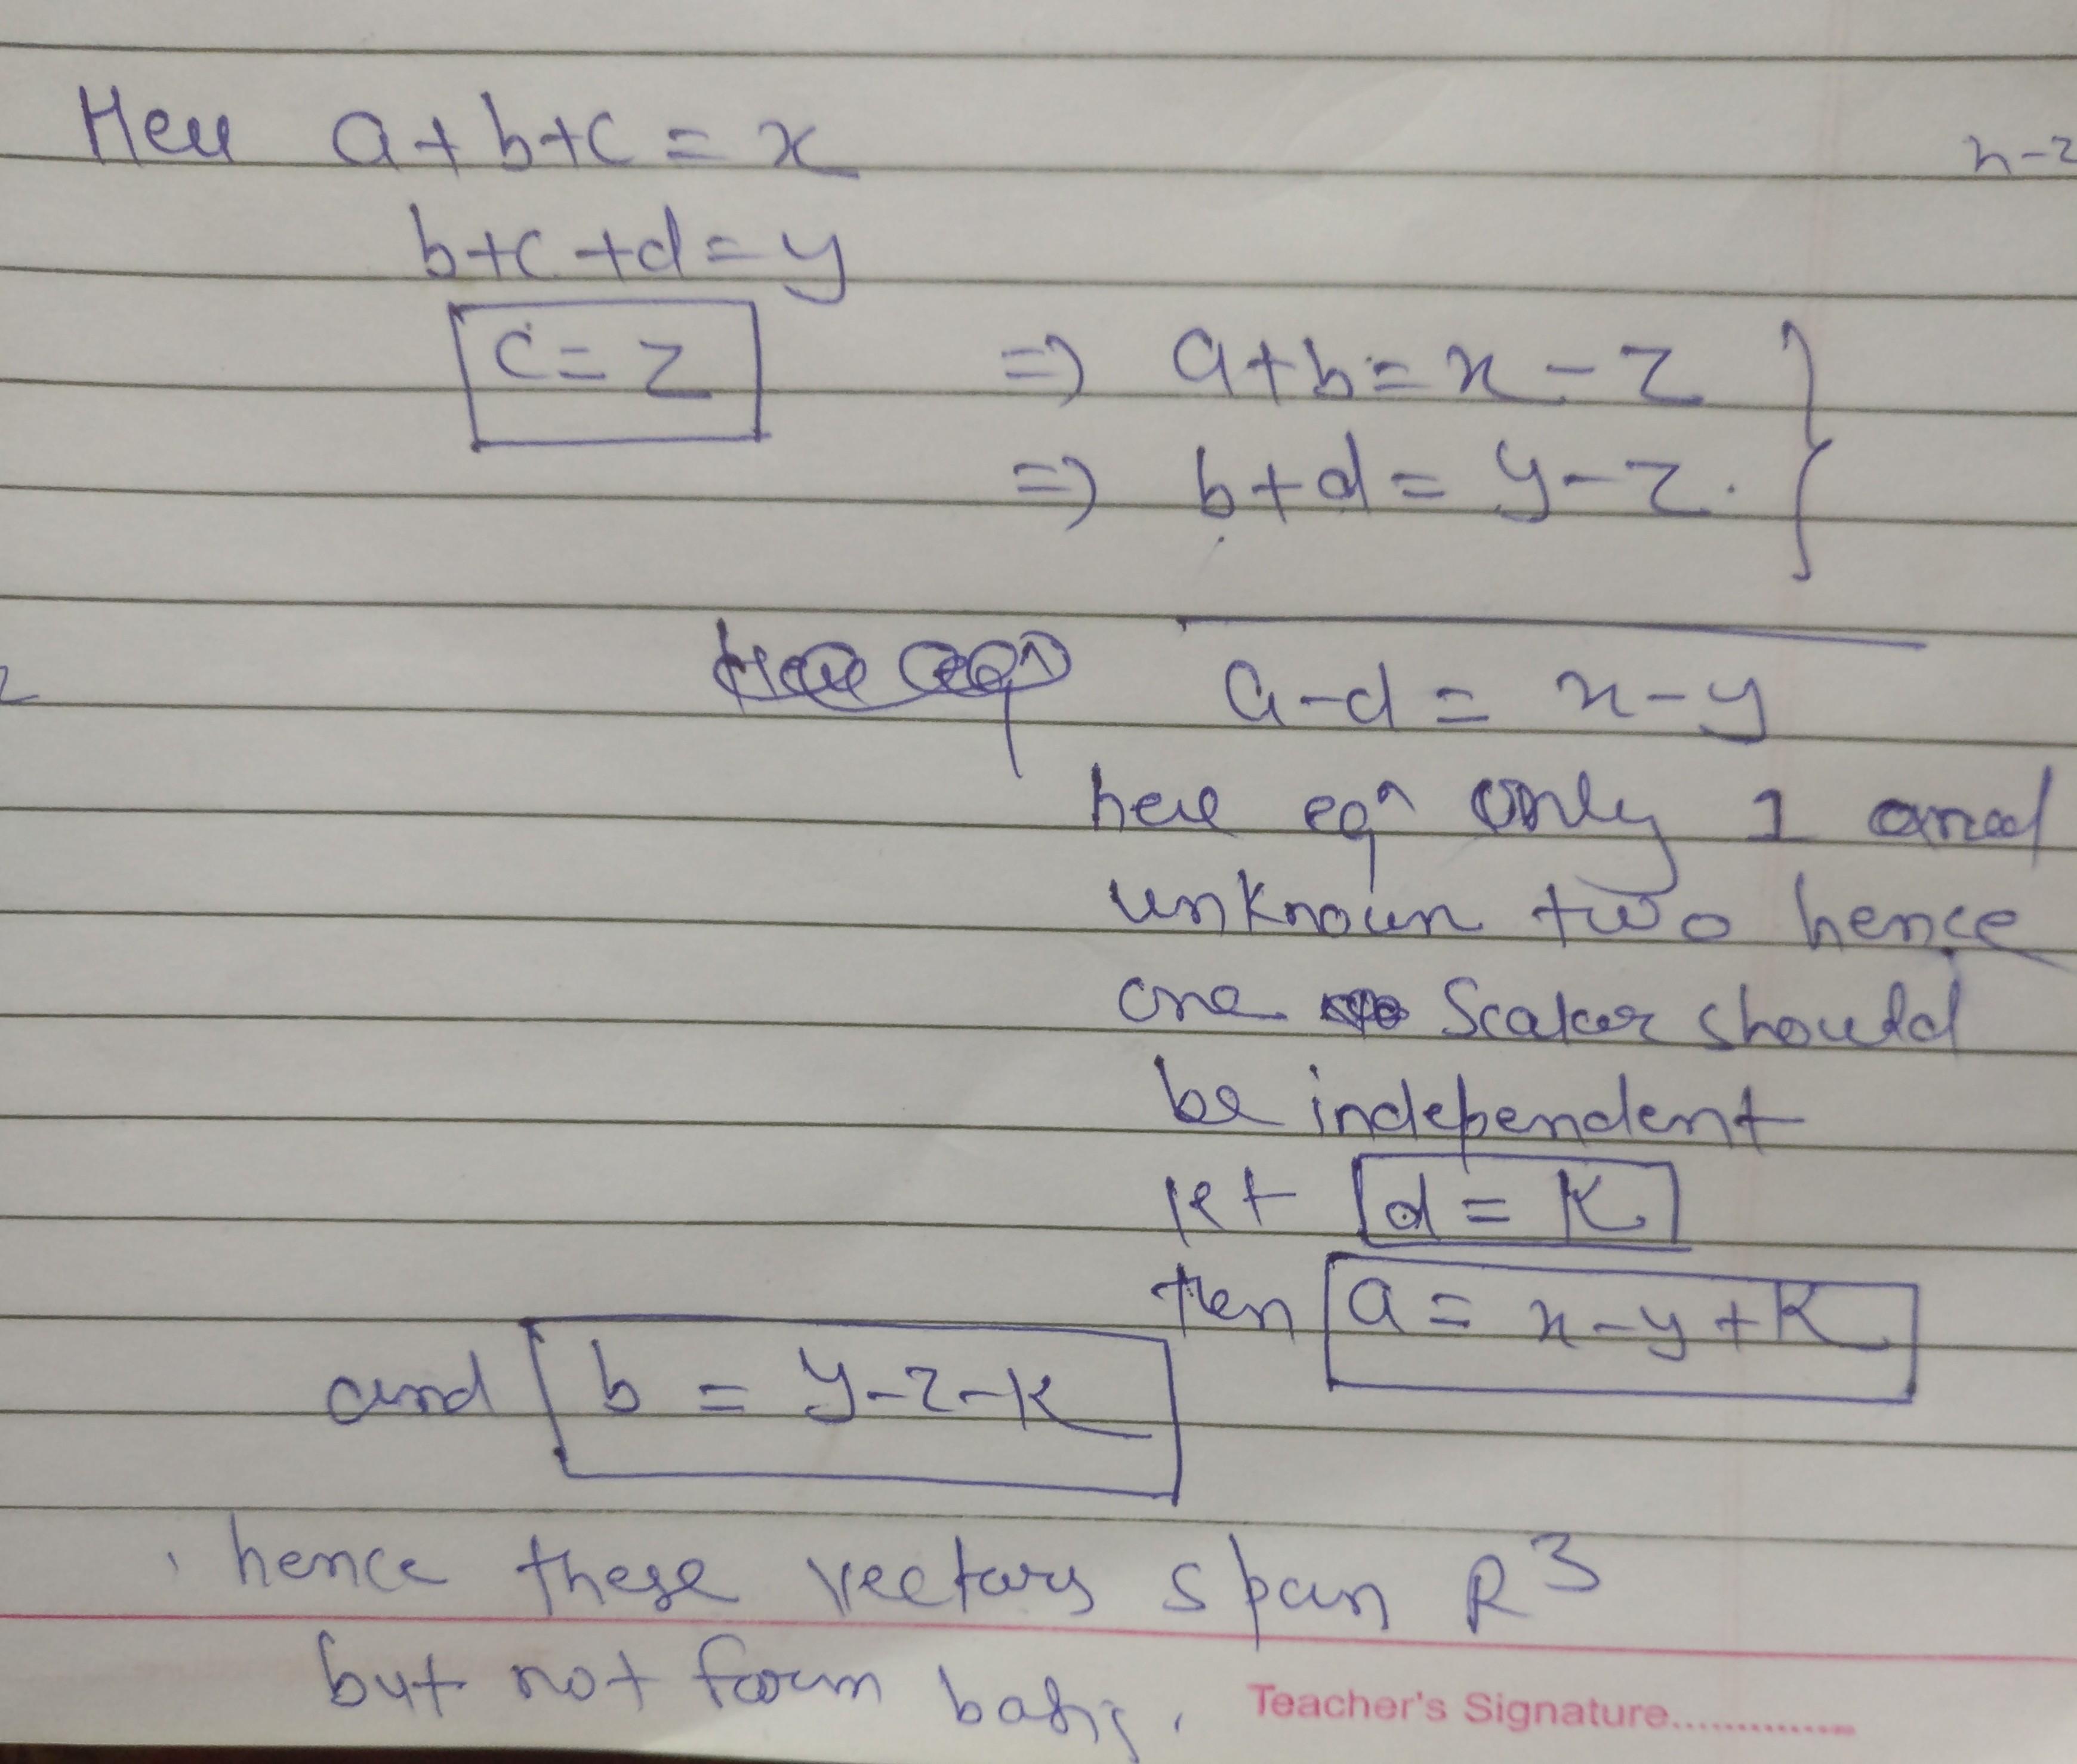 Here a+b+c = x
n-2
b+c+d = y
c = z => a+b = x-z
=> b+d = y-z.
a-d = x-y
here eqn only 1 and
unknown two hence
one Scaler should
be independent
let d = K
then a = x-y+K
and b = y-z-K
hence these vectors span R³
but not form basis.
Teacher's Signature..............